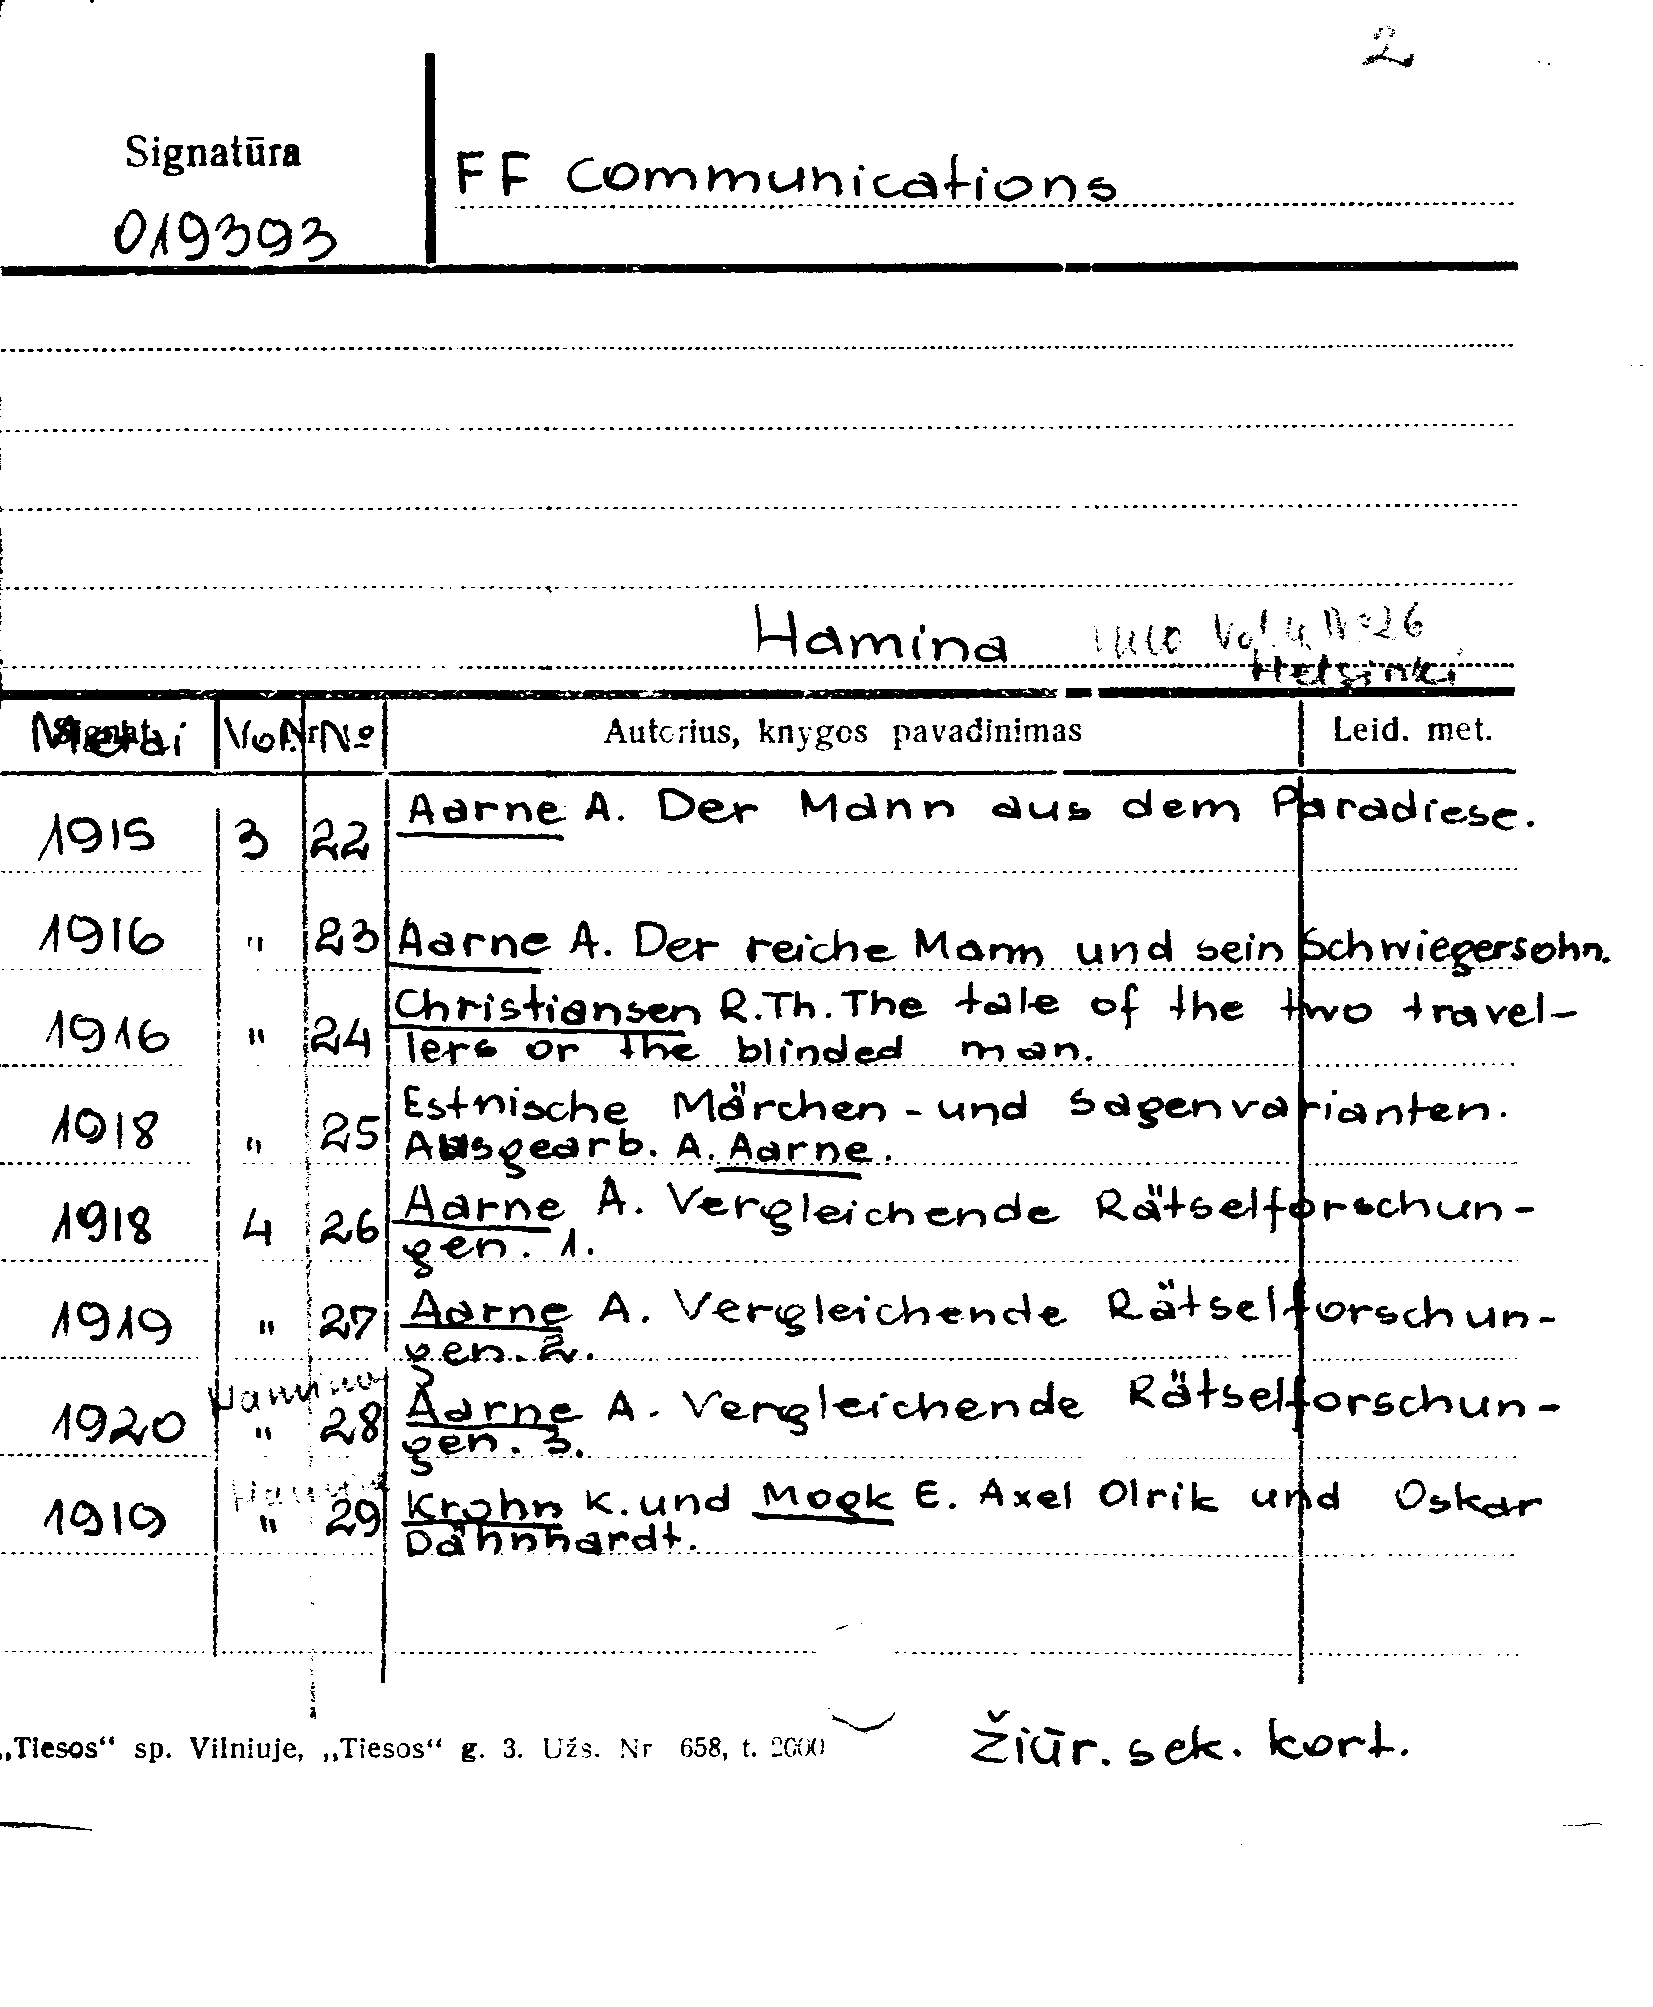 2
Signatūra
FF Communications
019393
Hamina Vol. 4 № 26
Helsinki
Metai Vol. № Autorius, knygos pavadinimas Leid. met.
1915 3 22 Aarne A. Der Mann aus dem Paradiese.
1916 " 23 Aarne A. Der reiche Mann und sein Schwiegersohn.
1916 " 24 Christiansen R. Th. The tale of the two travel-
lers or the blinded man.
1918 " 25 Estnische Märchen - und Sagenvarianten.
Ausgearb. A. Aarne.
1918 4 26 Aarne A. Vergleichende Rätselforschun-
gen. 1.
1919 " 27 Aarne A. Vergleichende Rätselforschun-
gen. 2.
Hamina
1920 " 28 Aarne A. Vergleichende Rätselforschun-
gen. 3.
Hamina
1919 " 29 Krohn K. und Mogk E. Axel Olrik und Oskar
Dähnhardt.
„Tiesos“ sp. Vilniuje, „Tiesos“ g. 3. Užs. Nr 658, t. 2000
Žiūr. sek. kort.